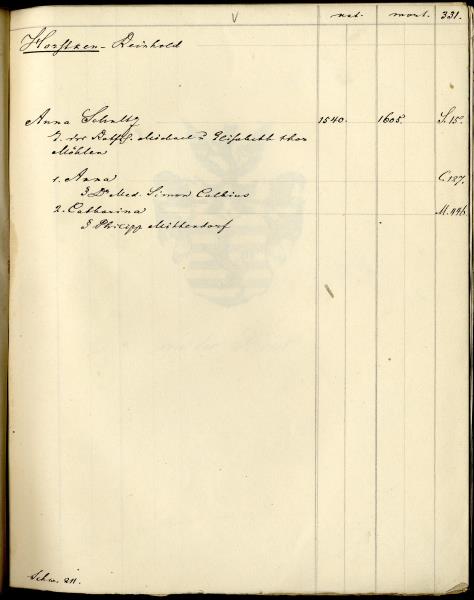 nat. mort. 331.
Horstzen - Reinhold
Anna Schultz 1540. 1605. S. 15.
T. des Rathsh. Michael u. Elisabeth thor
Möhlen
1. Anna C. 137.
Dr Med. Simon Calbius
2. Catharina M. 446
Philipp Mithendorf
Schw. 211.